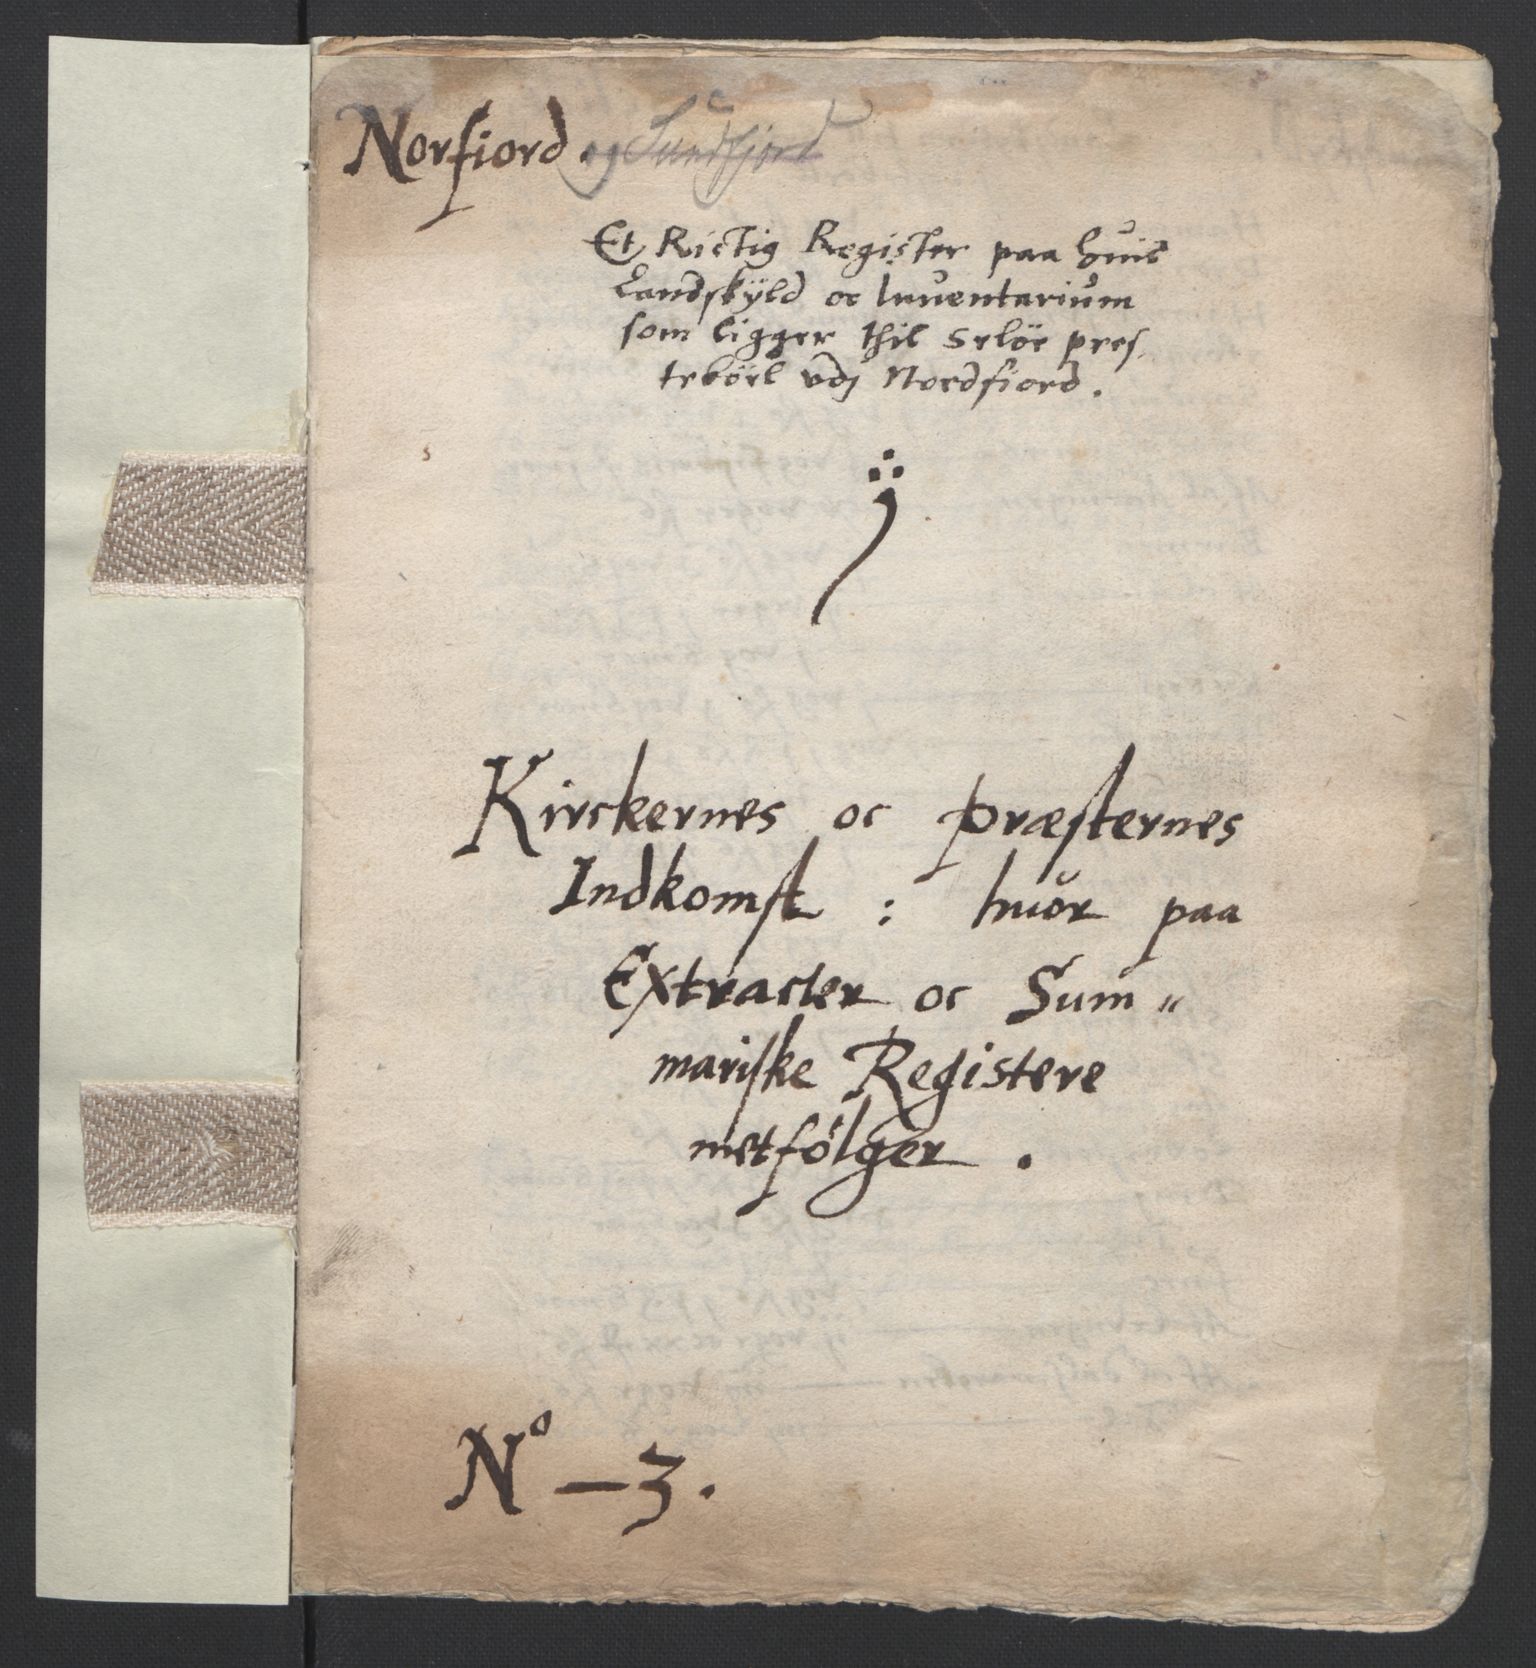 Norfiord. og Sundfjord
Et Rictig Register paa huis
Landskÿld oc Inuentarium
som ligger thil Selöe pres,
teböel vdj Nordfiord.
Kirckernes oc præsternes
Indkomst : huor paa
Extracter oc Sum〃
mariske Registere
metfölger .
No — 3.